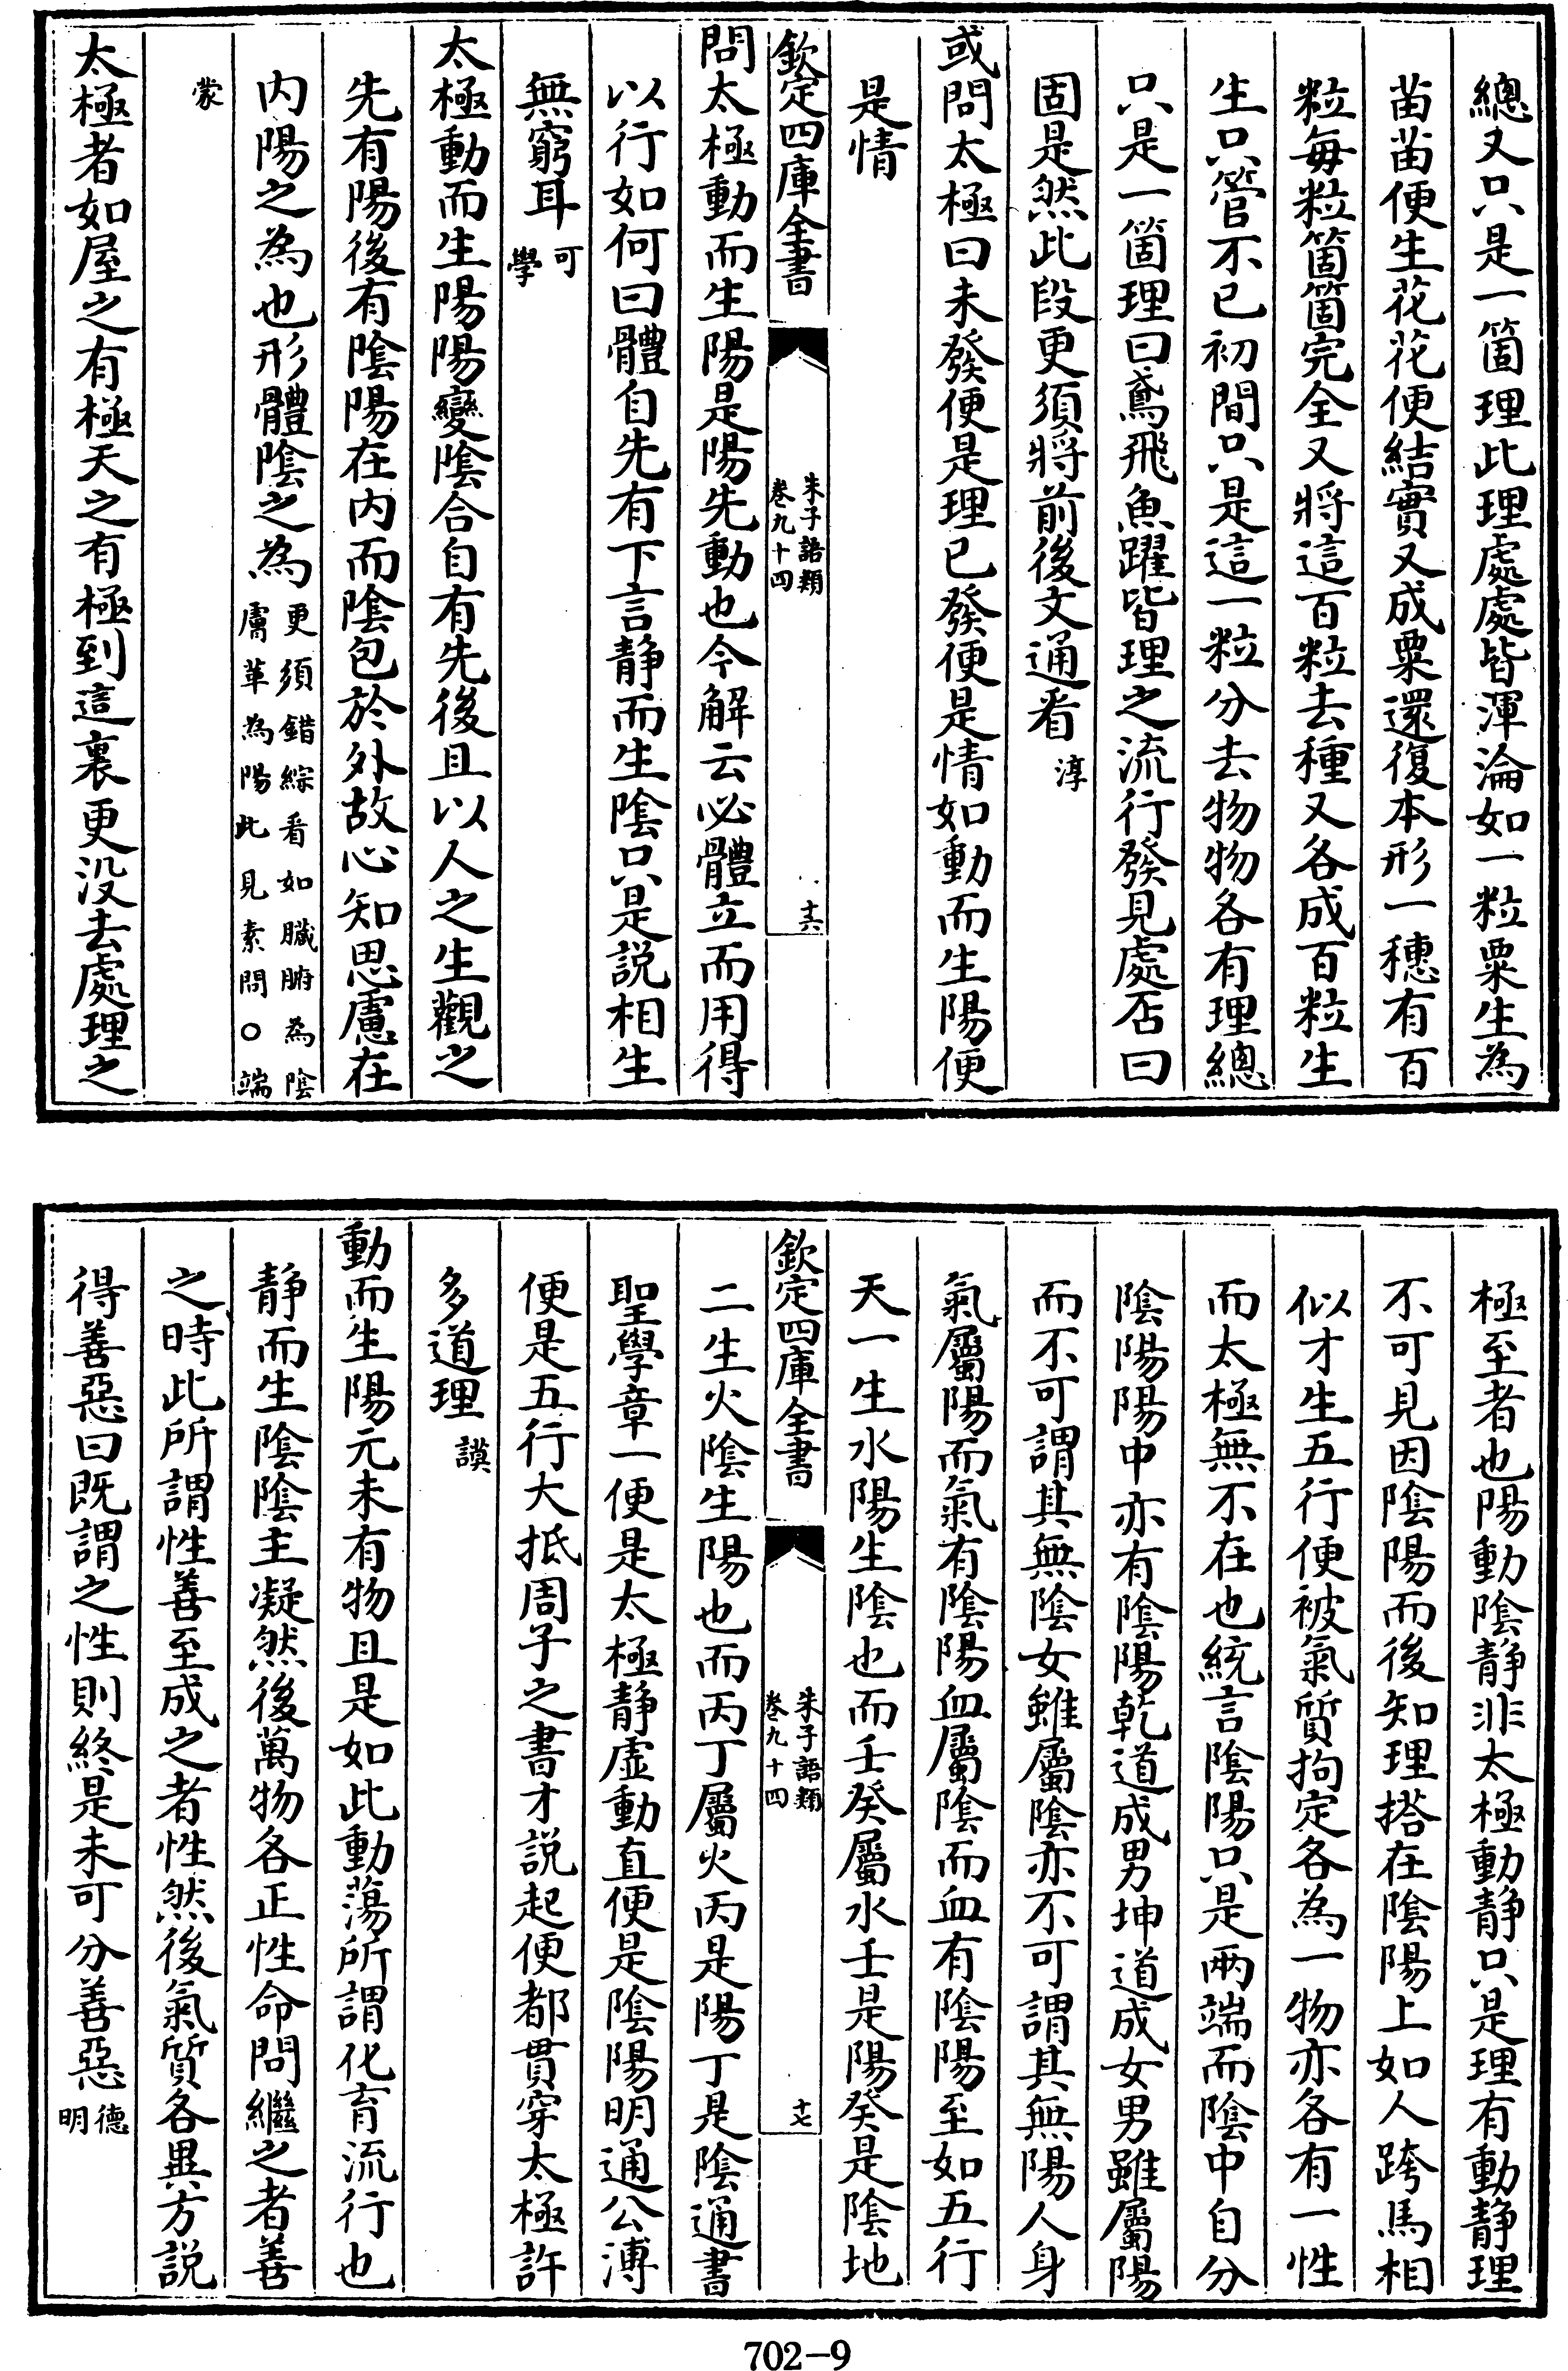 總又只是一箇理此理處處皆渾淪如一粒粟生為
苗苗便生花花便結實又成粟還復本形一穗有百
粒每粒箇箇完全又將這百粒去種又各成百粒生
生只管不已初間只是這一粒分去物物各有理總
只是一箇理曰鳶飛魚躍皆理之流行發見處否曰
固是然此段更須將前後文通看淳
或問太極曰未發便是理已發便是情如動而生陽便
是情
欽定四庫全書
朱子語類
卷九十四
十六
問太極動而生陽是陽先動也今解云必體立而用得
以行如何曰體自先有下言静而生陰只是説相生
無窮耳可學
太極動而生陽陽變陰合自有先後且以人之生觀之
先有陽後有陰陽在内而陰包於外故心知思慮在
内陽之為也形體陰之為更須錯綜看如臟腑為陰
膚革為陽此見素問○端
蒙
太極者如屋之有極天之有極到這裏更没去處理之
極至者也陽動陰静非太極動静只是理有動静理
不可見因陰陽而後知理搭在陰陽上如人跨馬相
似才生五行便被氣質拘定各為一物亦各有一性
而太極無不在也統言陰陽只是兩端而陰中自分
陰陽陽中亦有陰陽乾道成男坤道成女男雖屬陽
而不可謂其無陰女雖屬陰亦不可謂其無陽人身
氣屬陽而氣有陰陽血屬陰而血有陰陽至如五行
天一生水陽生陰也而壬癸屬水壬是陽癸是陰地
欽定四庫全書
朱子語類
卷九十四
十七
二生火陰生陽也而丙丁屬火丙是陽丁是陰通書
聖學章一便是太極静虚動直便是陰陽明通公溥
便是五行大抵周子之書才説起便都貫穿太極許
多道理謨
動而生陽元未有物且是如此動蕩所謂化育流行也
静而生陰陰主凝然後萬物各正性命問繼之者善
之時此所謂性善至成之者性然後氣質各異方説
得善惡曰既謂之性則終是未可分善惡德明
702-9